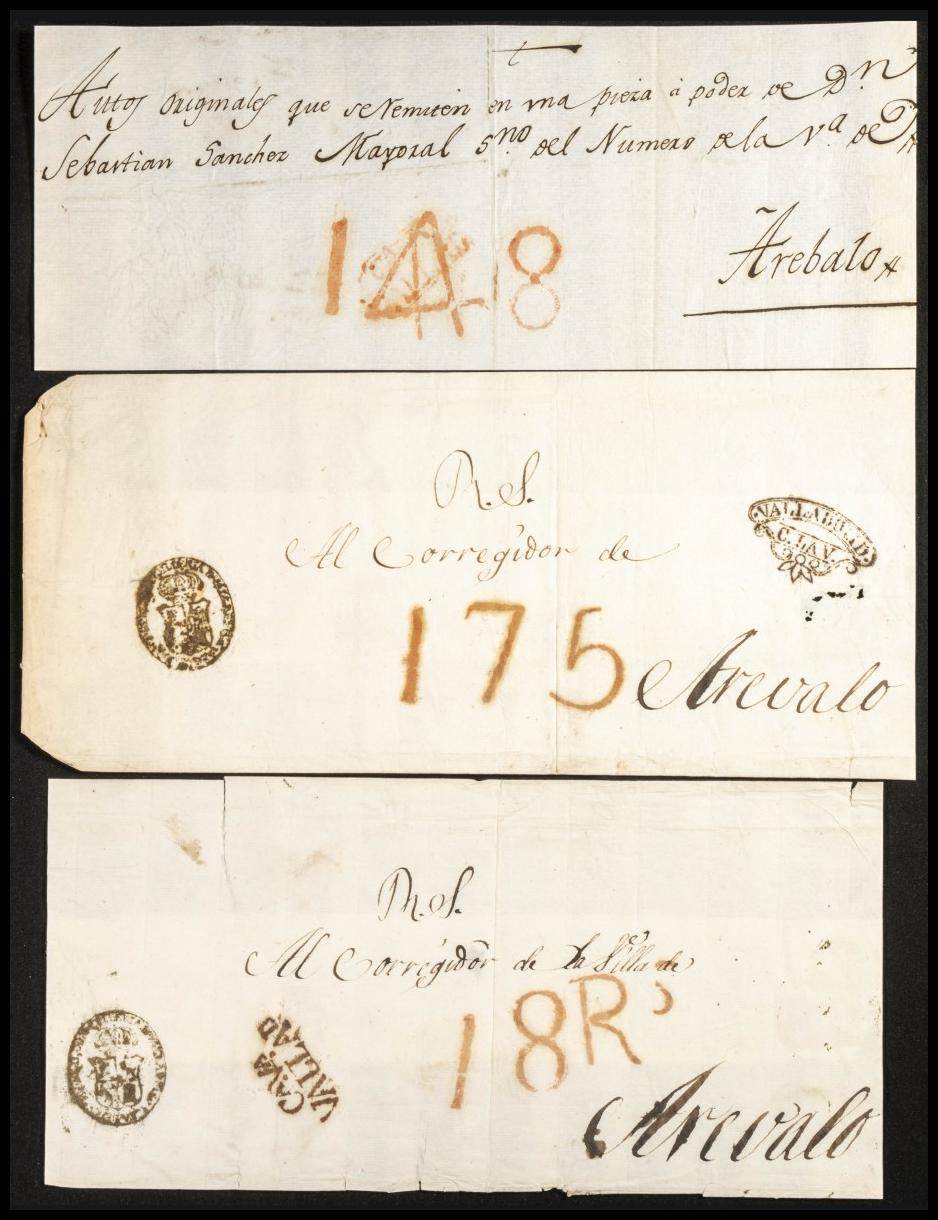 Autos originales que se remiten en una pieza à poder de D.n
Sebastian Sanchez Mayoral S.no del Numero de la V.a de
Ãrebalo
1 8
R. S.
Al Corregidor de
VALLADOLID
C. LA V.
175
Arevalo
R. S.
Al Corregidor de la Villa de
CA.V.A
VALLAD
18 Rs
Arevalo